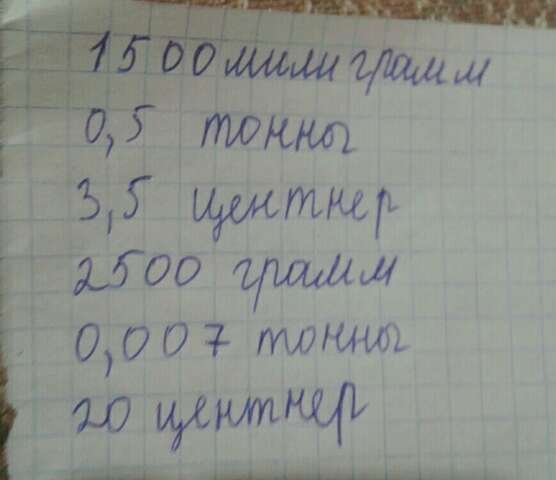 1500 милиграмм
0,5 тонны
3,5 центнер
2500 грамм
0,007 тонны
20 центнер